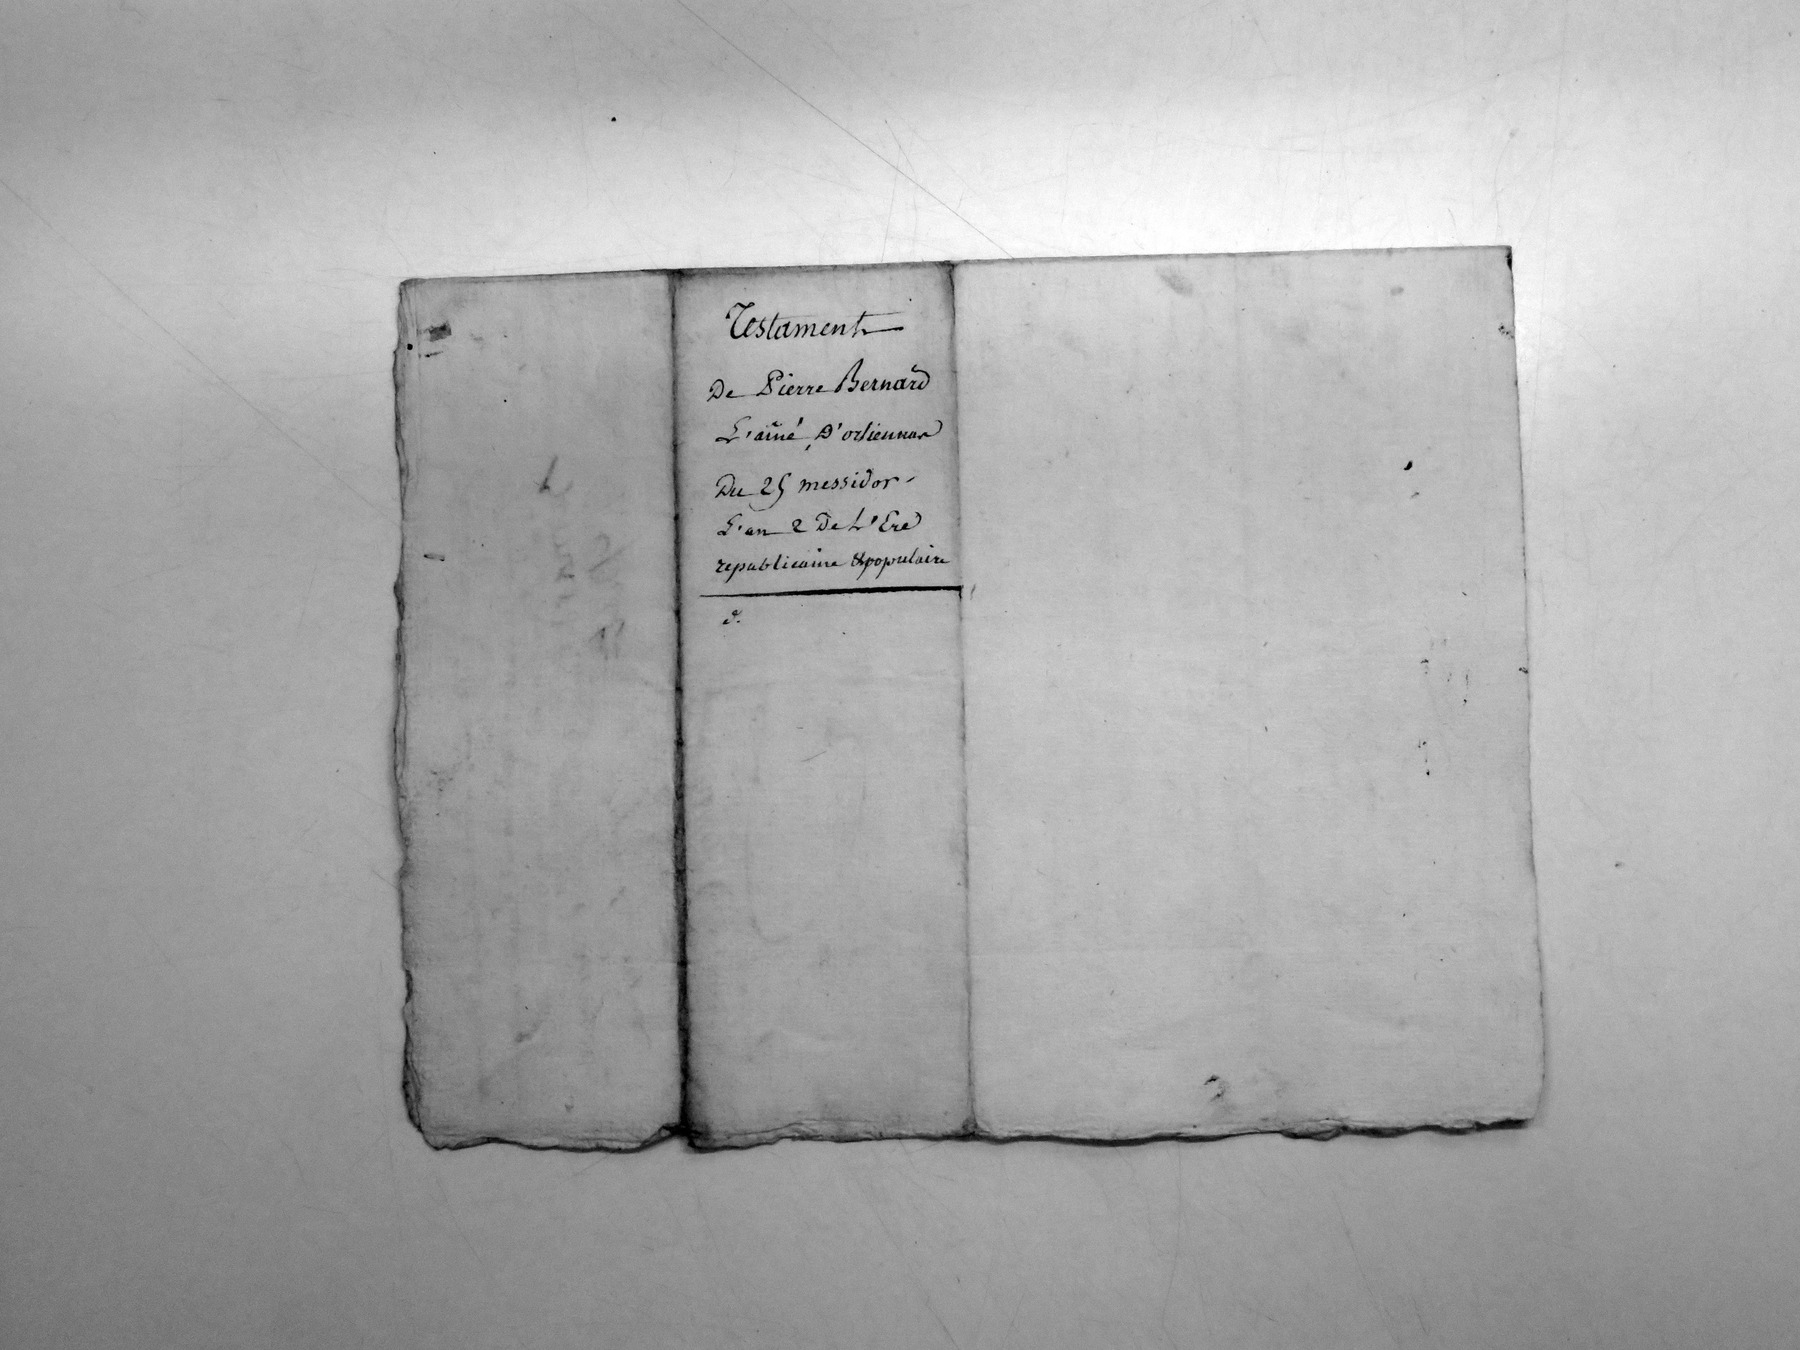 Testament
De Pierre Bernard
L'ainé D'orliennas
Du 25 messidor
L'an 2 De L'Ere
republicaine & populaire